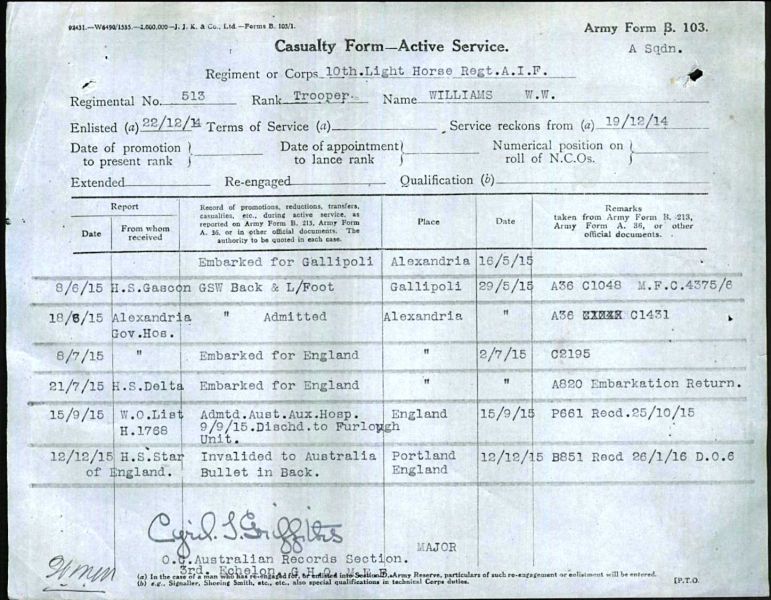 93431.—W6490/1535.—2,600,000—J. J. K. & Co., Ltd.—Forms B. 103/1.
Army Form B. 103.
Casualty Form—Active Service.
A Sqdn.
Regiment or Corps 10th.Light Horse Regt.A.I.F.
Regimental No. 513 Rank Trooper. Name WILLIAMS W.W.
Enlisted (a) 22/12/14 Terms of Service (a) Service reckons from (a) 19/12/14
Date of promotion } Date of appointment } Numerical position on }
to present rank to lance rank roll of N.C.Os.
Extended Re-engaged Qualification (b)
Report
Date
From whom received
Record of promotions, reductions, transfers,
casualties, etc., during active service, as
reported on Army Form B. 213, Army Form
A. 36, or in other official documents. The
authority to be quoted in each case.
Place
Date
Remarks
taken from Army Form B. 213,
Army Form A. 36, or other
official documents.
Embarked for Gallipoli Alexandria 16/5/15
8/6/15 H.S.Gascon GSW Back & L/Foot Gallipoli 29/5/15 A36 C1048 M.F.C.4375/6
18/6/15 Alexandria " Admitted Alexandria " A36 C1431
Gov.Hos.
8/7/15 " Embarked for England " 2/7/15 C2195
21/7/15 H.S.Delta Embarked for England " " A820 Embarkation Return.
15/9/15 W.O.List Admtd.Aust.Aux.Hosp. England 15/9/15 P661 Recd.25/10/15
H.1768 9/9/15.Dischd.to Furlough
Unit.
12/12/15 H.S.Star Invalided to Australia Portland 12/12/15 B851 Recd 26/1/16 D.O.6
of England. Bullet in Back. England
Cyril. S. Griffiths
MAJOR
O.C.Australian Records Section.
3rd. Echelon. G.H.Q. M.E.F.
(a) In the case of a man who has re-engaged for, or enlisted into Section D, Army Reserve, particulars of such re-engagement or enlistment will be entered.
(b) e.g., Signaller, Shoeing Smith, etc., etc., also special qualifications in technical Corps duties.
[P.T.O.